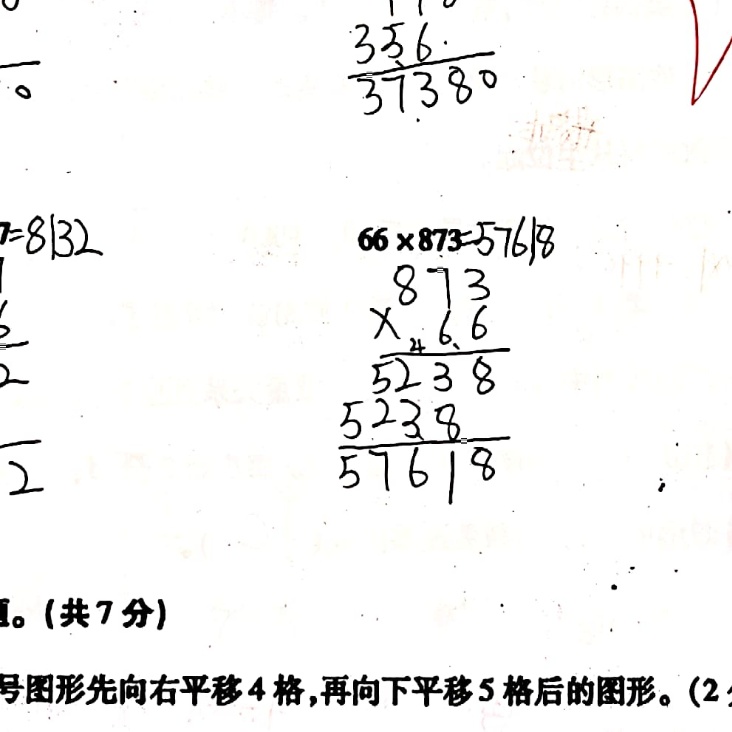 356
37380
7=8132
66×873=57618
873
×66
4
5238
5238
57618
2
2
。(共7分)
号图形先向右平移4格,再向下平移5格后的图形。(2